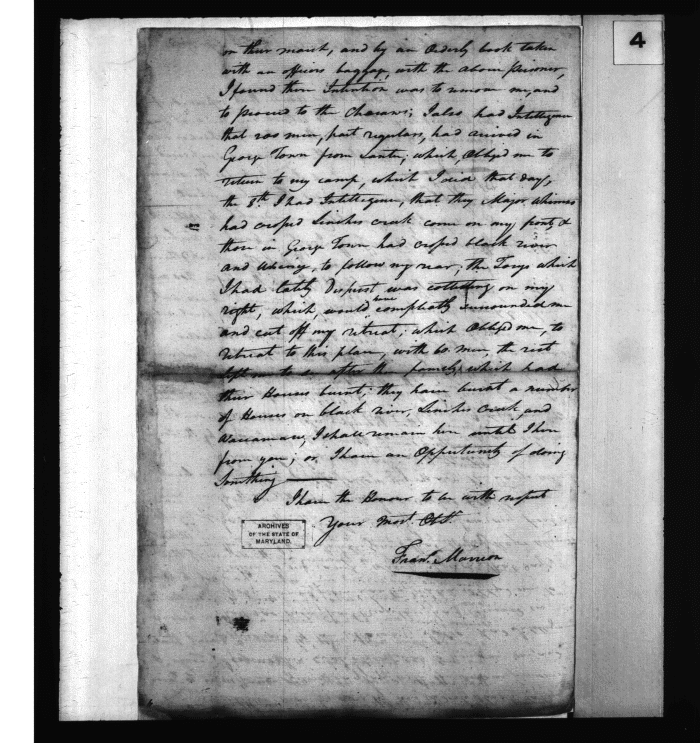 4
on their march, and by an Orderly book taken
with an officers baggage, with the above prisoner,
I found their Intention was to remove me, and
to proceed to the Charaws; I also had Intelligence
that 200 men, part regulars, had arrived in
George Town from Santee, which Obliged me to
return to my camp, which I did that day,
the 8th I had Intelligence, that they Major Whimes
had crossed Linches creek come on my front, &
those in George Town had crossed black river
and to follow my rear; the Torys which
I had lately Disperst was collecting on my
right, which, would have compleatly surrounded me
and cut off my retreat; which Obliged me, to
retreat to this place, with 60 men, the rest
left me to see after their famelys which had
their Houses burnt; they have burnt a number
of Houses on black river, Linches Creek and
Waccamaw, I shall remain here until I hear
from you; or I have an Opportunity of doing
Something
I have the Honour to be with respect
Your Most. Obt.
Frans. Marrion
ARCHIVES
OF THE STATE OF
MARYLAND.